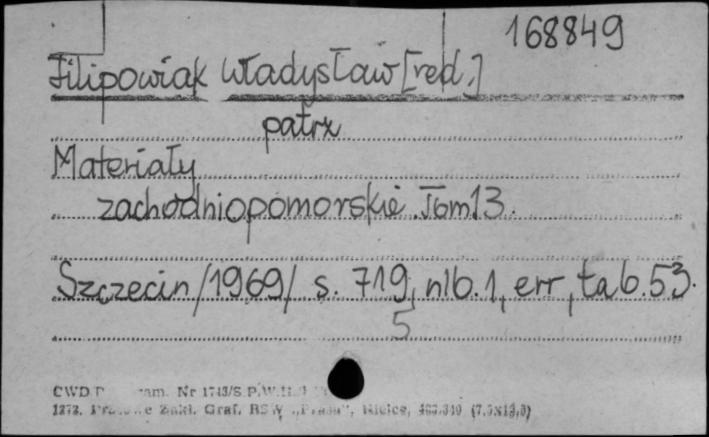 168849
Filipowiak Władysław [red.]
patrz
Materiały
zachodniopomorskie. Tom 13.
Szczecin /1969/ s. 719, nlb. 1, err, tab. 53.
5
CWD Nr 1743/S
1272. Zakł. Graf. RSW „Prasa", Kielce,